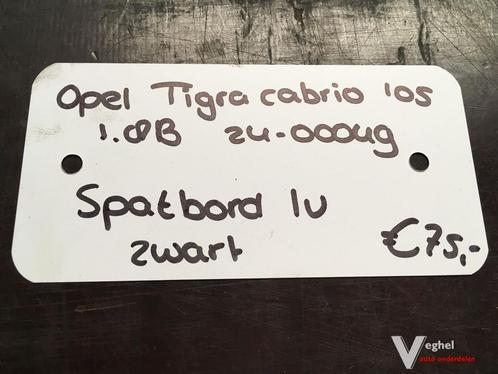 Opel Tigra cabrio '05
1.8B 24-00049
Spatbord lv
zwart
€75,-
Veghel
auto onderdelen